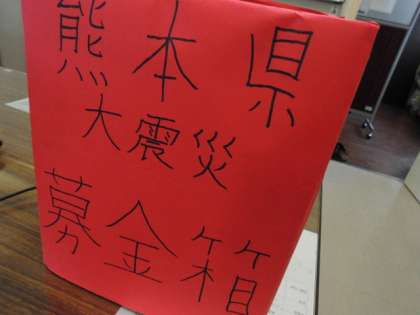 熊本県
大震災
募金箱